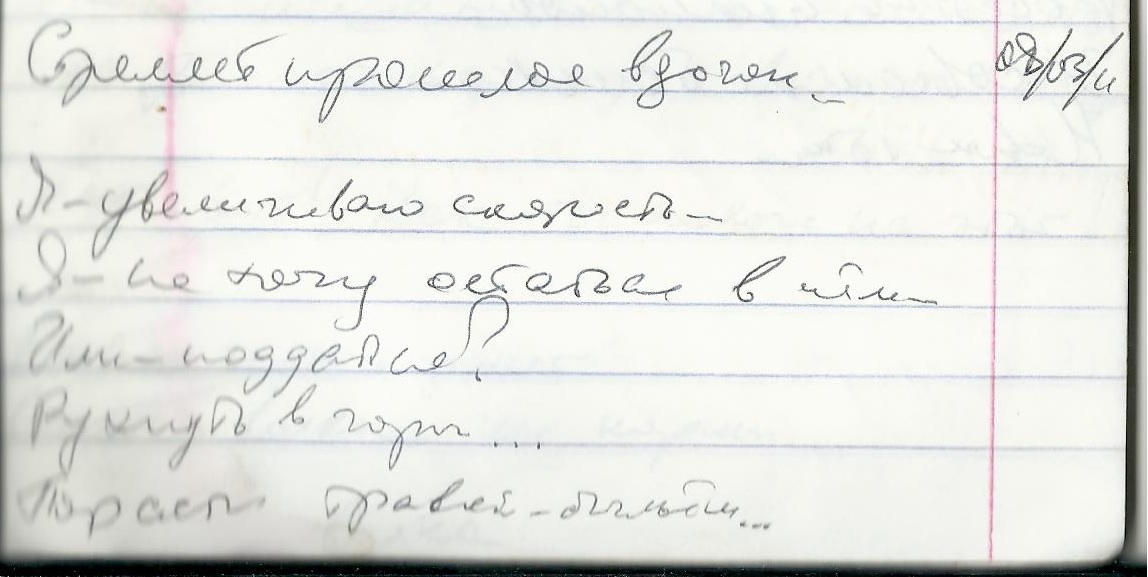 Стреляет прошлое вдогон... 08/03/11
Я – увеличиваю скорость...
Я – не хочу остаться в
Или – поддаться?
Рухнуть в горы...
Порасти травой-былью...